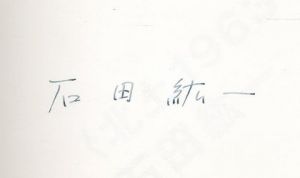 石田紘一